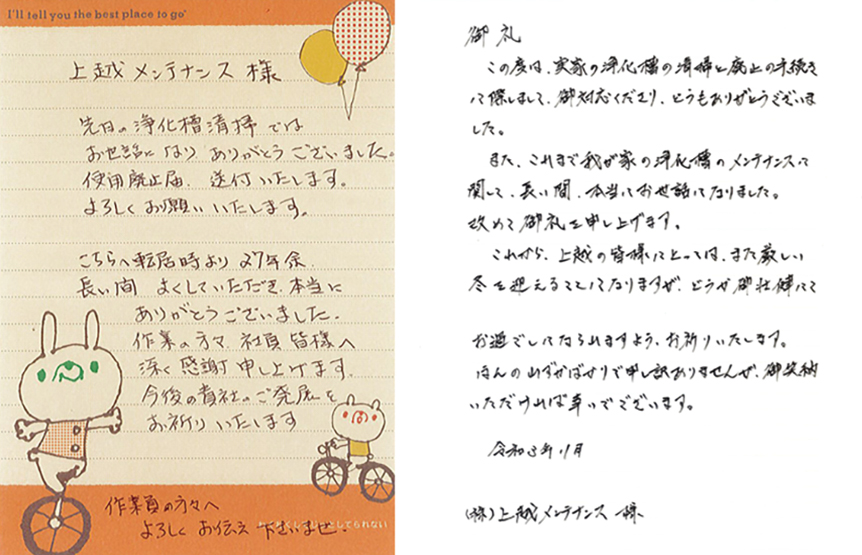 I'll tell you the best place to go
上越メンテナンス 様
先日の浄化槽清掃では
お世話になり ありがとうございました。
使用廃止届、送付いたします。
よろしくお願いいたします。
こちらへ転居時より27年余、
長い間 よくしていただき、本当に
ありがとうございました。
作業の方々、社員皆様へ
深く感謝申し上げます。
今後の貴社のご発展を
お祈りいたします
作業員の方々へ
よろしくお伝え下さいませ。
御礼
この度は、実家の浄化槽の清掃と廃止の手続き
に際しまして、御対応くださり、どうもありがとうございま
した。
また、これまで我が家の浄化槽のメンテナンスに
関して、長い間、本当にお世話になりました。
改めて御礼を申し上げます。
これから、上越の皆様にとっては、また厳しい
冬を迎えることになりますが、どうか御壮健にて
お過ごしになられますよう、お祈りいたします。
ほんのわずかばかりで申し訳ありませんが、御笑納
いただければ幸いでございます。
令和3年11月
(株)上越メンテナンス 様